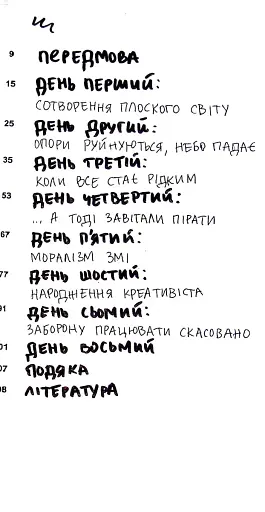 9 ПЕРЕДМОВА
15 ДЕНЬ ПЕРШИЙ:
СОТВОРЕННЯ ПЛОСКОГО СВІТУ
25 ДЕНЬ ДРУГИЙ:
ОПОРИ РУЙНУЮТЬСЯ, НЕБО ПАДАЄ
35 ДЕНЬ ТРЕТІЙ:
КОЛИ ВСЕ СТАЄ РІДКИМ
53 ДЕНЬ ЧЕТВЕРТИЙ:
... А ТОДІ ЗАВІТАЛИ ПІРАТИ
67 ДЕНЬ П'ЯТИЙ:
МОРАЛІЗМ ЗМІ
77 ДЕНЬ ШОСТИЙ:
НАРОДЖЕННЯ КРЕАТИВІСТА
91 ДЕНЬ СЬОМИЙ:
ЗАБОРОНУ ПРАЦЮВАТИ СКАСОВАНО
01 ДЕНЬ ВОСЬМИЙ
07 ПОДЯКА
08 ЛІТЕРАТУРА